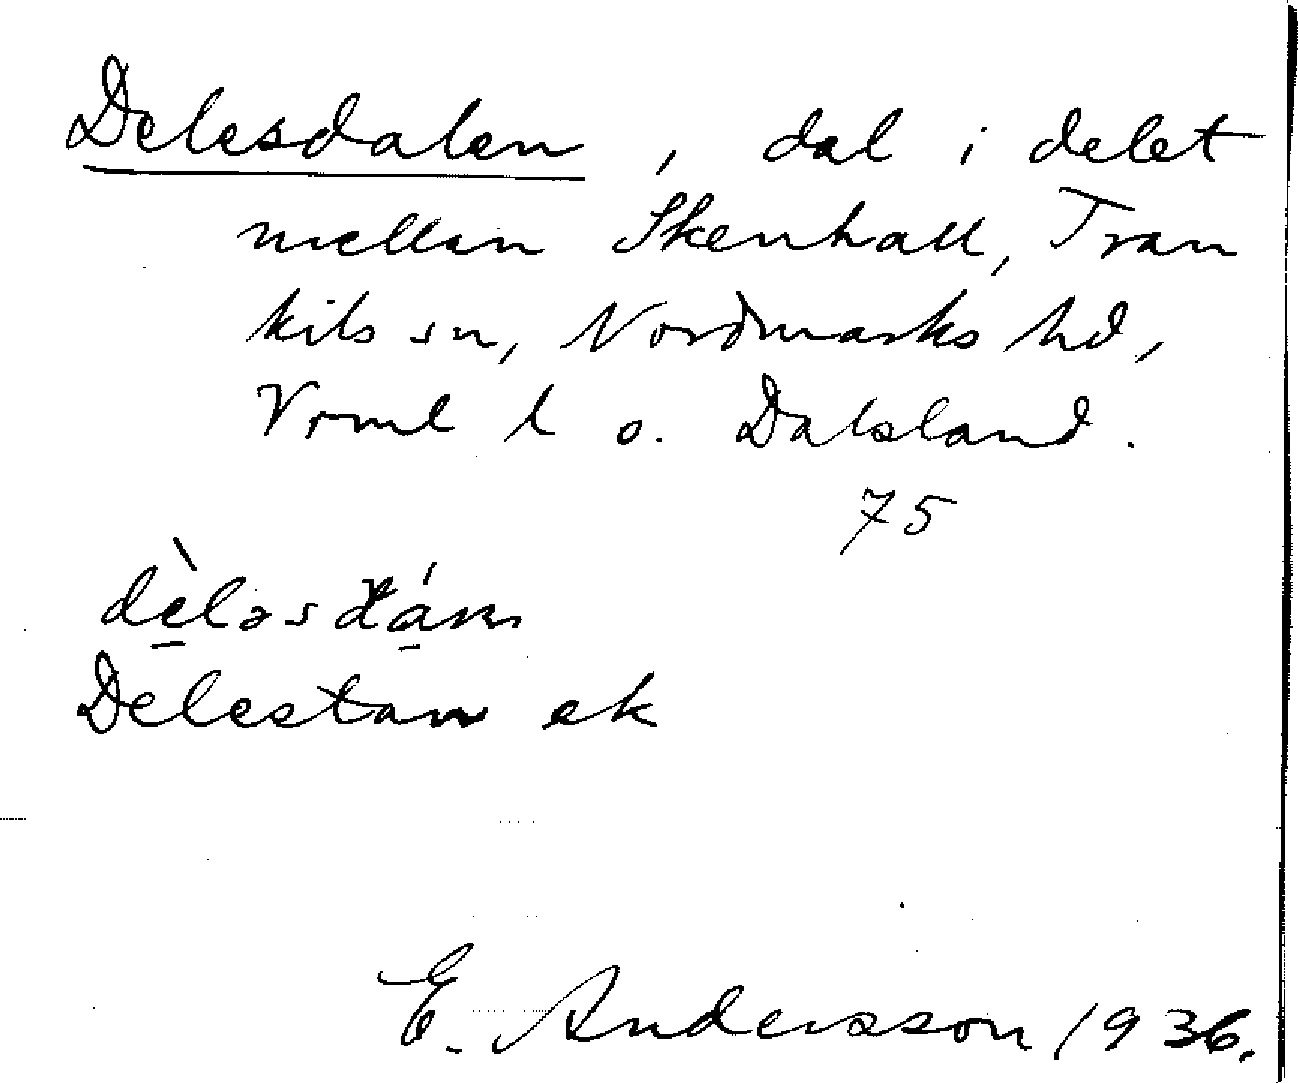 Delesdalen, dal i delet
mellan Skenhall, Tran
kils sn, Nordmarks hd,
Vrml l o. Dalsland.
75
Delestan ek
E. Andersson 1936.